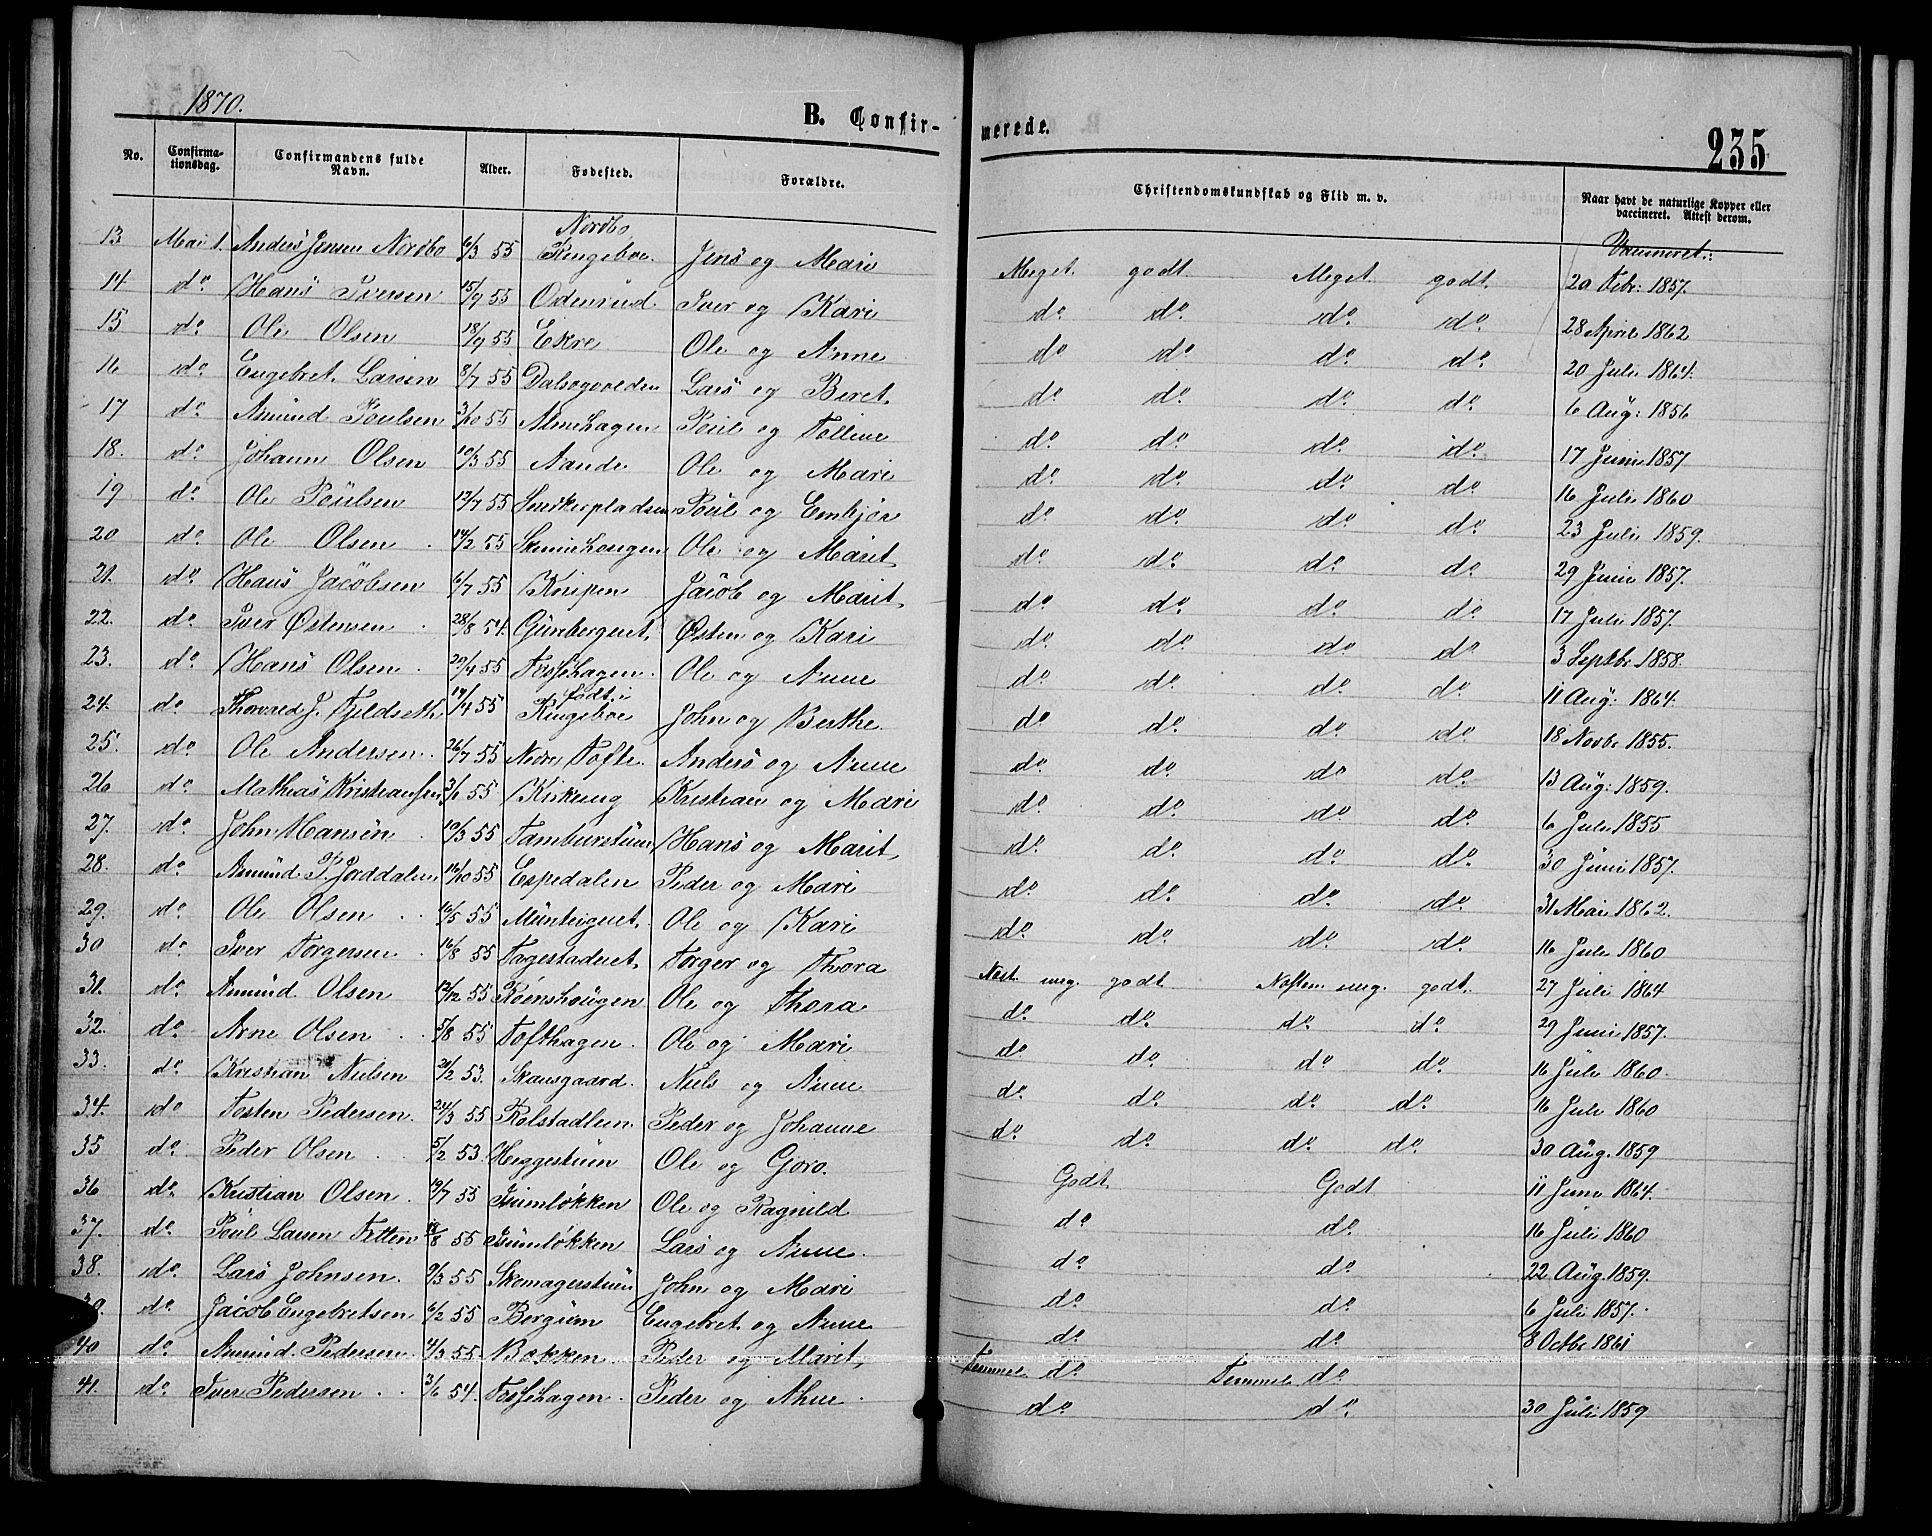 1870.
B. Confir-
merede.
235
No. Confirma-tionsdag. Confirmandens fulde Navn. Alder. Fødested. Forældre. Christendomskundskab og Flid m. v. Naar havt de naturlige Kopper eller vaccineret. Attest derom.
Nordbo
13 Mai 1. Anders Jensen Nordbo 6/3 55 Ringeboe. Jens og Mari Meget godt Meget godt Vaccineret: 20 Febr: 1857.
14 do Hans Iversen 15/9 55 Odenrud Iver og Kari do do do do 28 April 1862
15 do Ole Olsen 18/9 55 Ekre Ole og Anne do do do do 20 Juli 1864.
16 do Engebret Larsen 8/7 55 Lars og Beret do do do do 6 Aug: 1856
17 do Amund Poulsen 3/10 55 Poul og do do do do 17 Juni 1857
18. do Johannes Olsen 10/3 55 Aande Ole og Mari do do do do 16 Juli 1860
19 do Ole Poulsen 12/7 55 Snekkerpladsen Poul og Embjør do do do do 23 Juli 1859.
20 do Ole Olsen 14/2 55 Ole og Marit do do do do 29 Juni 1857.
21. do Hans Jacobsen 6/7 55 Jacob og Marit do do do do 17 Juli 1857.
22. do Iver Østensen 28/8 54. Østen og Kari do do do do 3 Septbr 1858.
23. do Hans Olsen 20/4 55 Fossehagen. Ole og Anne do do do do 11 Aug: 1864.
24. do Thorvald J. Fjeldseth 14/4 55 født i Ringeboe John og Berthe do do do do 18 Novbr 1855.
25. do Ole Andersen. 26/7 55 Nedre Tofte Anders og Anne do do do do 13 Aug: 1859.
26 do Mathias Kristiansen 3/6 55 Kirkeng Kristian og Mari do do do do 6 Juli 1855
27. do John Hansen 10/3 55 Tamburstuen Hans og Marit do do do do 30 Juni 1857.
28. do Amund P. Jorddalen 16/10 55 Espedalen Peder og Mari do do do do 31 Mai 1862.
29. do Ole Olsen 16/5 55 Ole og Kari do do do do 16 Juli 1860
30 do Iver Torgersen 16/8 55 Torger og Thora Næst meg. godt Næsten meg. godt. 27 Juli 1864
31. do Amund Olsen 12/12 55 Ole og Thora do do do do 29 Juni 1857.
32. do Arne Olsen 5/8 55 Tofthagen. Ole og Mari do do do do 16 Juli 1860.
33. do Kristian Nielsen 21/2 53. Skansgaard. Niels og Anne do do do do 16 Juli 1860
34. do Tosten Pedersen. 24/3 55 Rolstadlien Peder og Johanne do do do do 30 Aug. 1859
35 do Peder Olsen 5/2 53. Heggestuen Ole og Goro. Godt Godt 11 Juni 1864.
36 do Kristian Olsen. 19/7 55 Isumløkken Ole og Ragnild do do 16 Juli 1860
37. do Poul Larsen Tetten 18/8 55 Isumløkken Lars og Anne. do do 22 Aug. 1859.
38. do Lars Johnsen. 9/3 55 Skomagerstuen John og Mari do do 6 Juli 1857.
39. do Jacob Engebretsen 6/2 55 Bergum Engebret og Anne do do 8 Octbr 1861
40 do Amund Pedersen 4/3 55 Bakken Peder og Marit Temmel do Temmel do
41. do Iver Pedersen 3/6 54. Fossehagen. Peder og Anne. do do 30 Juli 1859